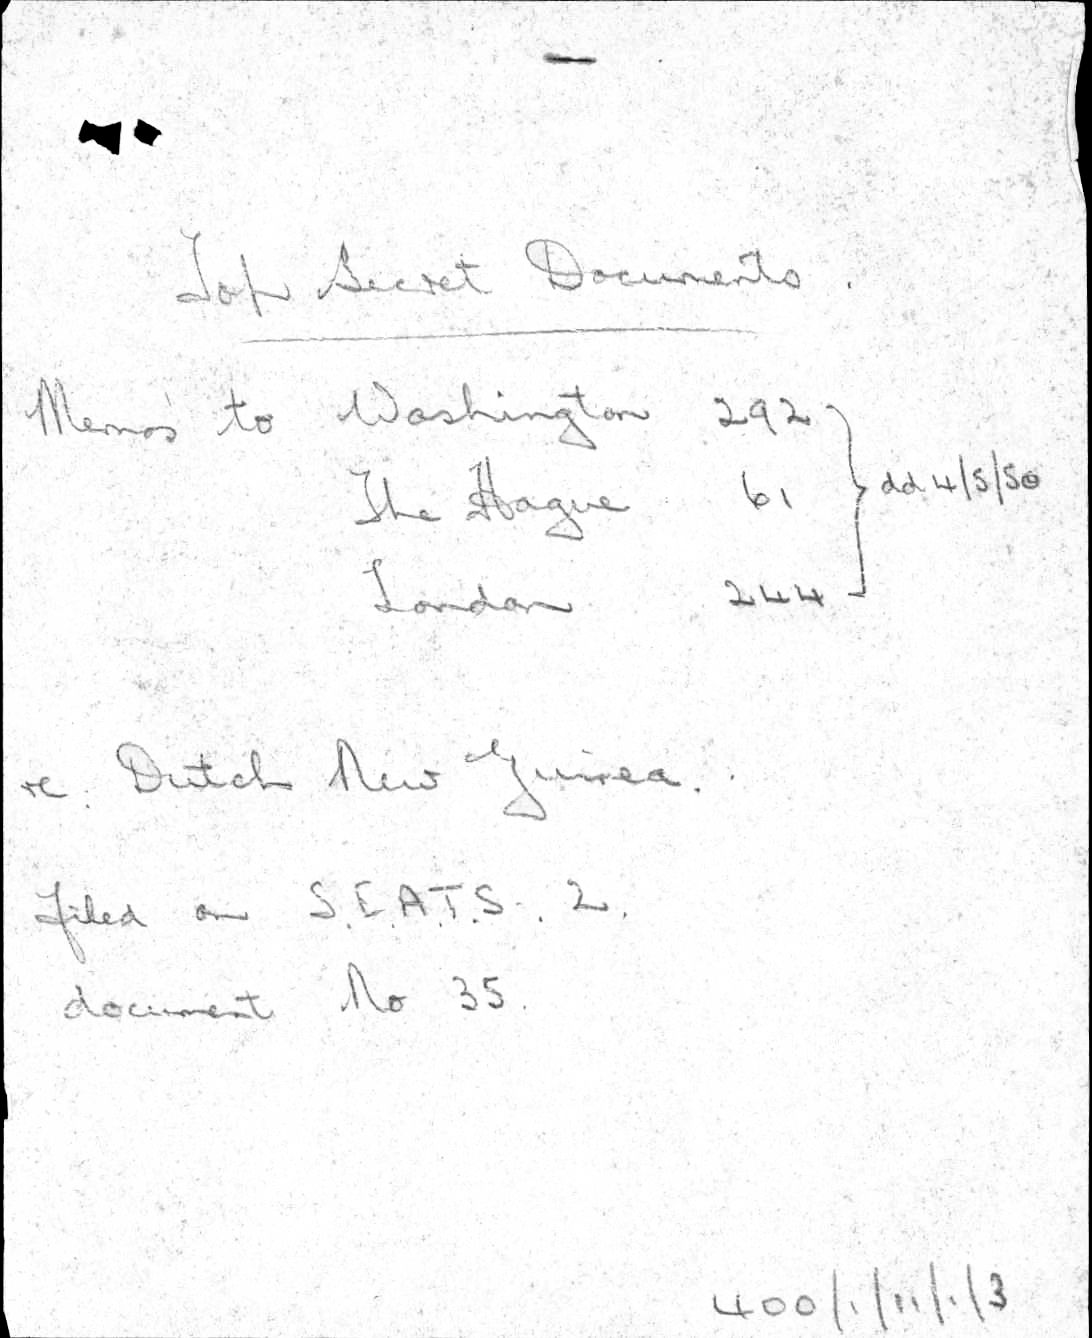 Top Secret Documents.
Memos to Washington 292
The Hague 61
London 244
dd. 4/5/50
re. Dutch New Guinea.
filed on S.E.A.T.S. 2.
document No 35.
400/1/11/1/3